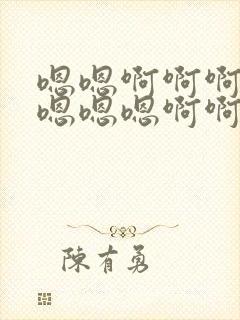 嗯嗯啊啊啊
嗯嗯嗯啊啊
陳有勇